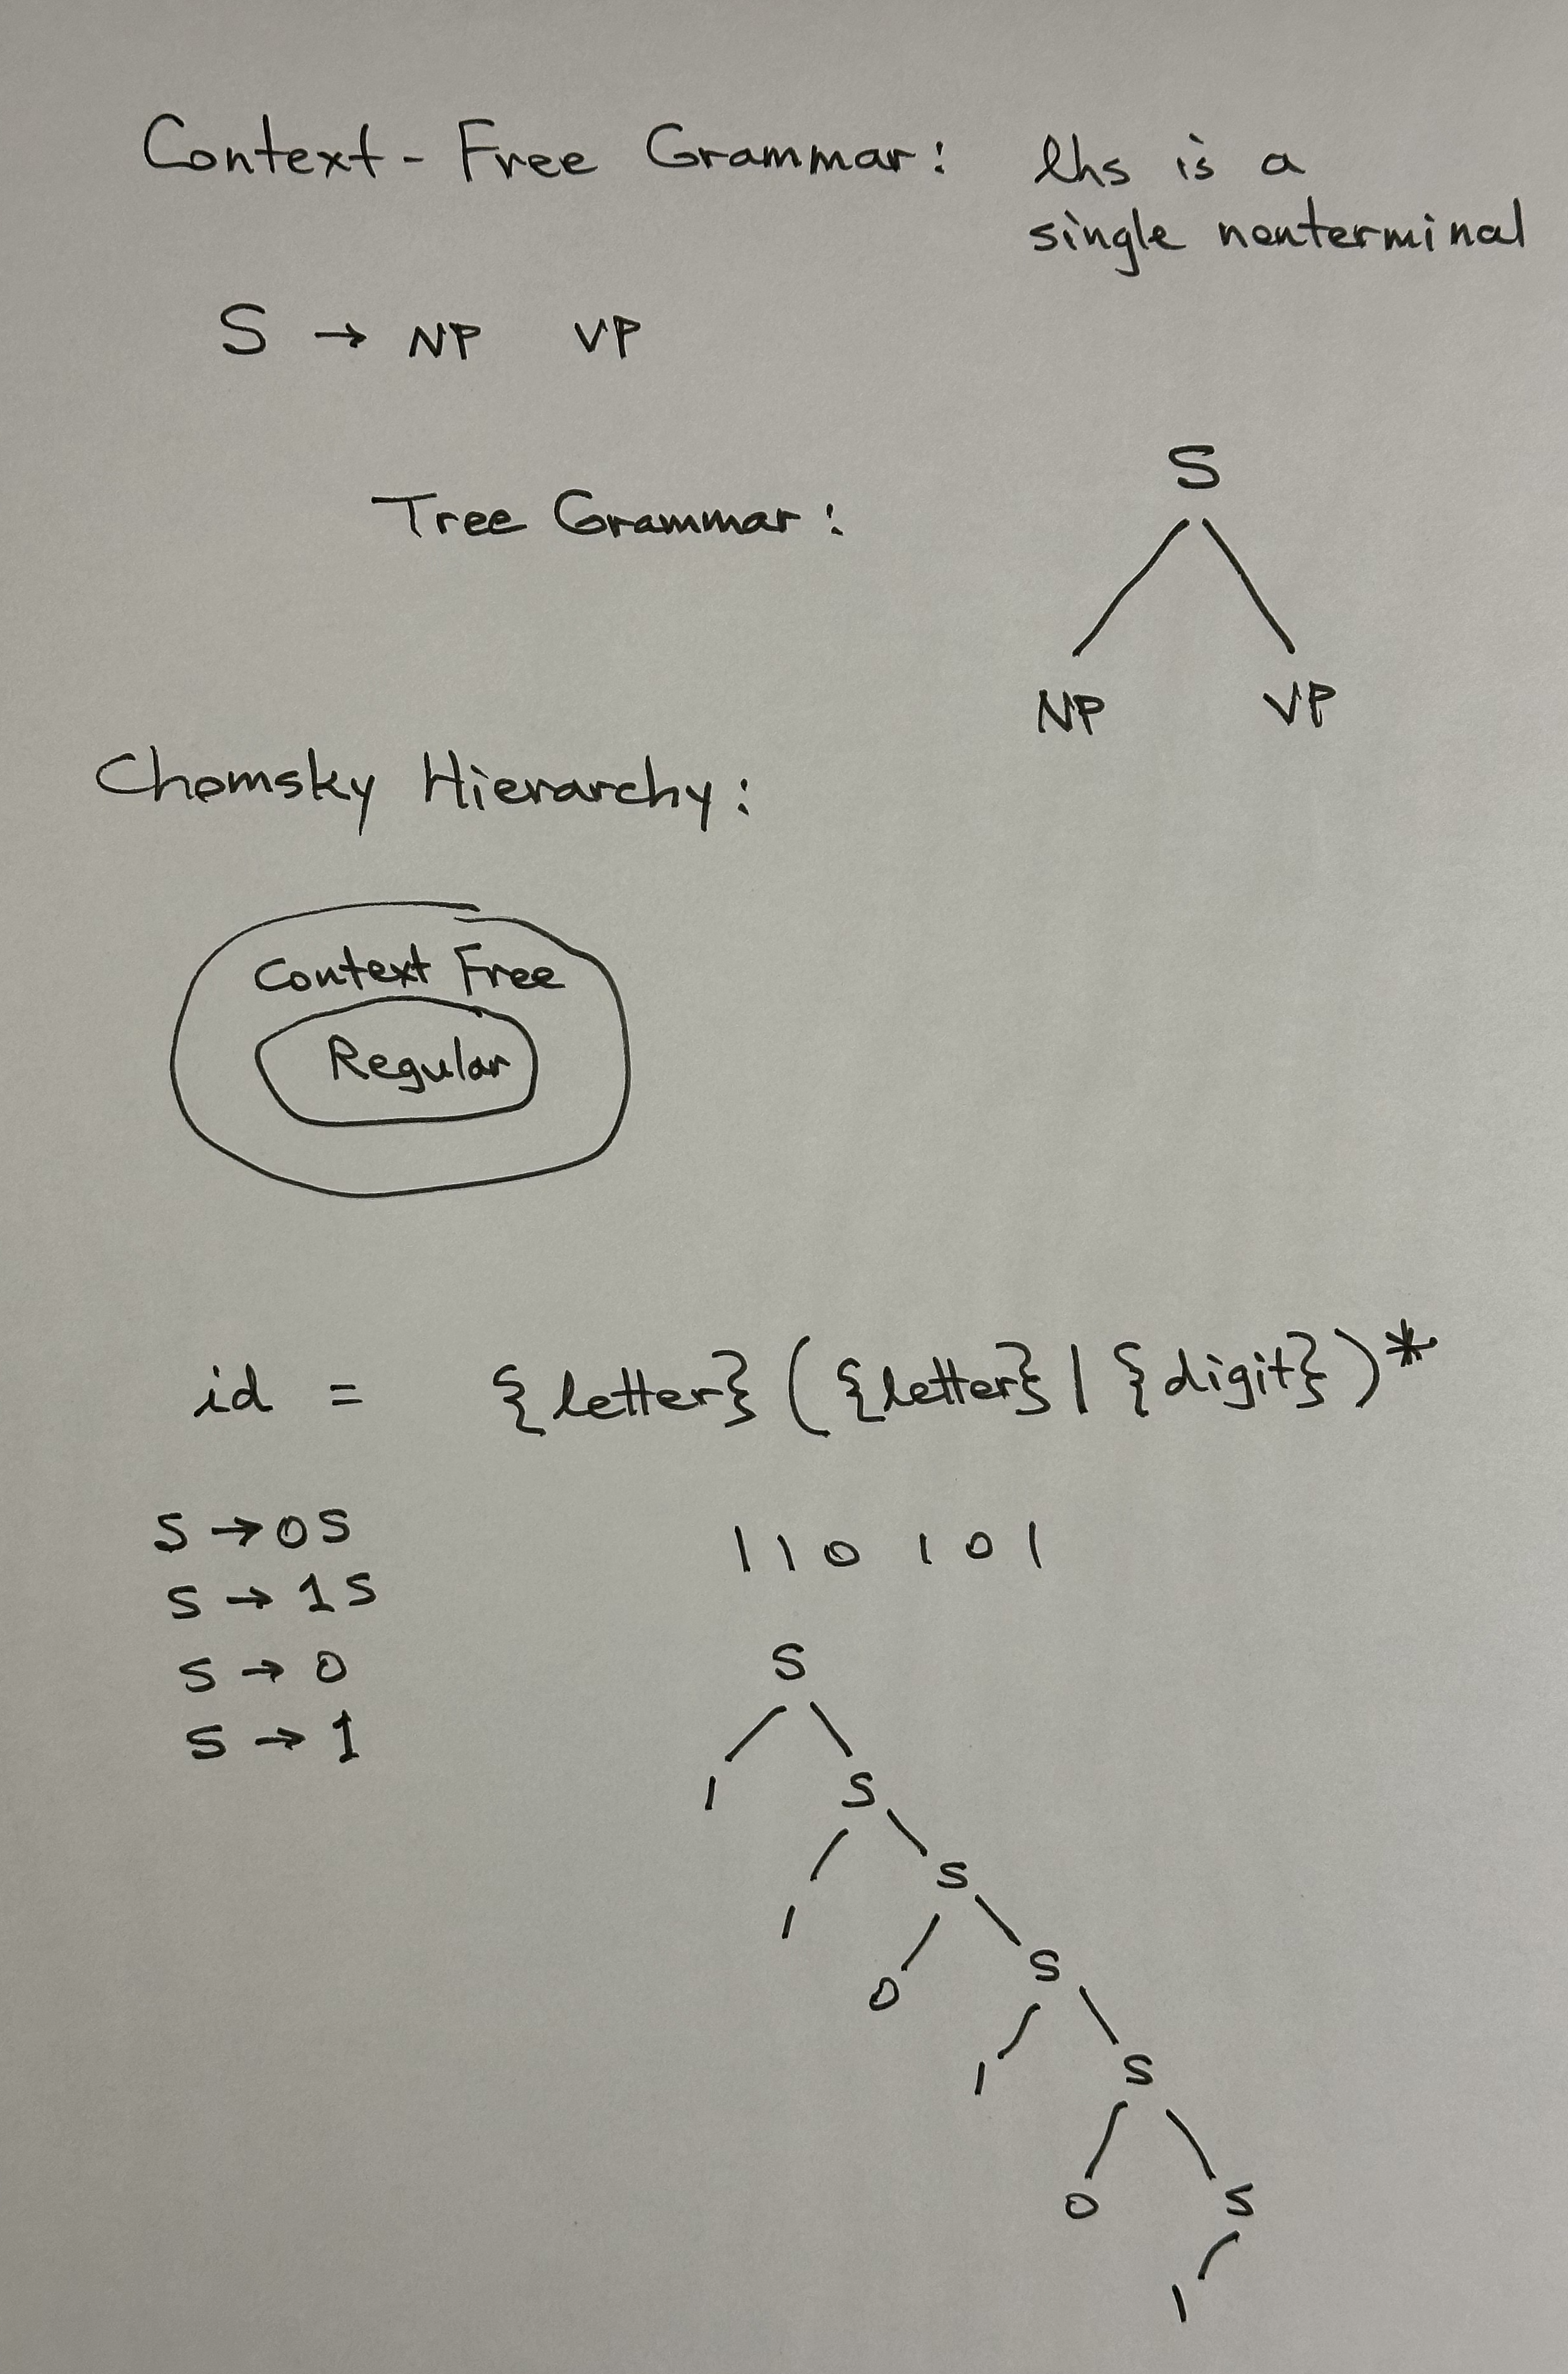 Context-Free Grammar: lhs is a
single nonterminal
S → NP VP
Tree Grammar:
S
NP VP
Chomsky Hierarchy:
Context Free
Regular
id = {letter}({letter}|{digit})*
S → 0S
S → 1S
S → 0
S → 1
110101
S
1 S
1 S
0 S
1 S
0 S
1